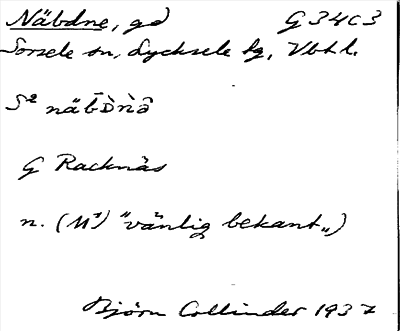 Näbdne, gd G 34 C 3
Sorsele sn, Lycksele lg, Vbtl.
S² näb̄D̀ǹâ
G Racknäs
n. (M¹) "vänlig bekant„)
Björn Collinder 1937